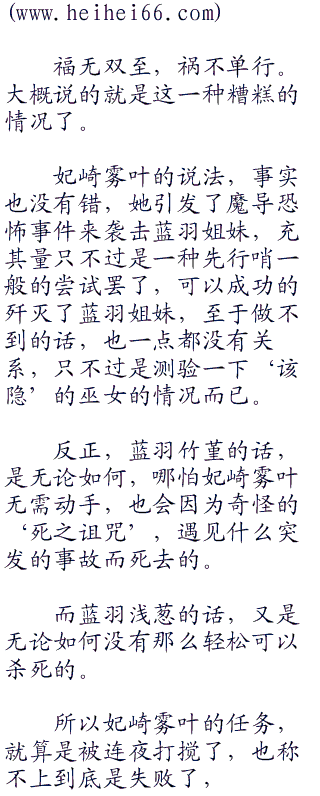 (www.heihei66.com)
福无双至，祸不单行。
大概说的就是这一种糟糕的
情况了。
妃崎雾叶的说法，事实
也没有错，她引发了魔导恐
怖事件来袭击蓝羽姐妹，充
其量只不过是一种先行哨一
般的尝试罢了，可以成功的
歼灭了蓝羽姐妹，至于做不
到的话，也一点都没有关
系，只不过是测验一下‘该
隐’的巫女的情况而已。
反正，蓝羽竹堇的话，
是无论如何，哪怕妃崎雾叶
无需动手，也会因为奇怪的
‘死之诅咒’，遇见什么突
发的事故而死去的。
而蓝羽浅葱的话，又是
无论如何没有那么轻松可以
杀死的。
所以妃崎雾叶的任务，
就算是被连夜打搅了，也称
不上到底是失败了，